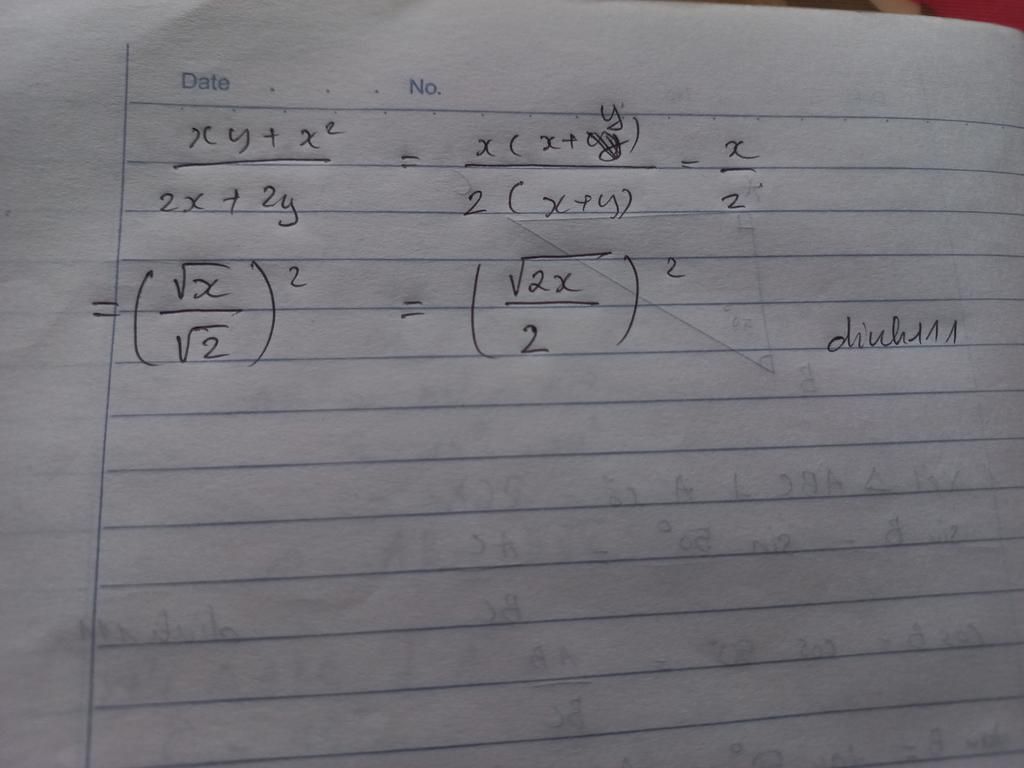 Date . . . No.
xy + x² / 2x + 2y = x(x+y) / 2(x+y) = x / 2
= (√x / √2)² = (√2x / 2)²
dinh111